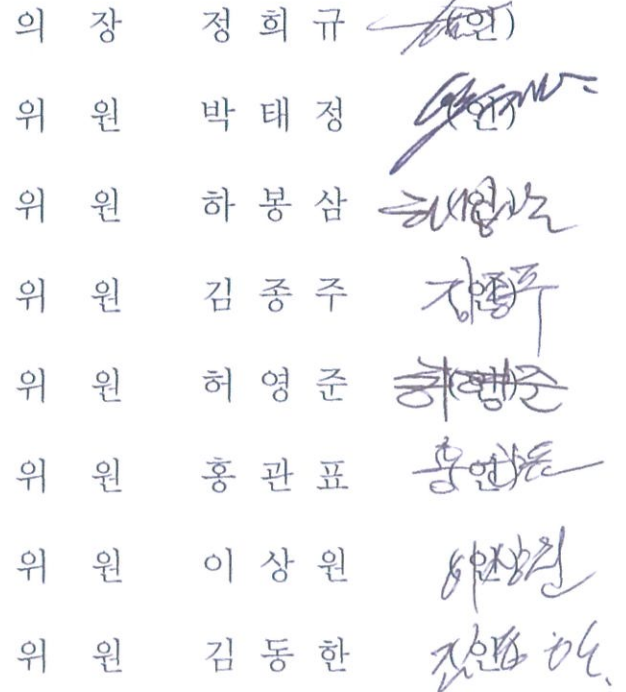 의 장 정 희 규 (인)
위 원 박 태 정 (인)
위 원 하 봉 삼 (인)
위 원 김 종 주 (인)
위 원 허 영 준 (인)
위 원 홍 관 표 (인)
위 원 이 상 원 (인)
위 원 김 동 한 (인)